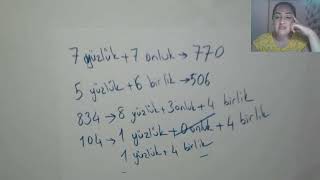 7 yüzlük + 7 onluk → 770
5 yüzlük + 6 birlik → 506
834 → 8 yüzlük + 3 onluk + 4 birlik
104 → 1 yüzlük + 0 onluk + 4 birlik
1 yüzlük + 4 birlik